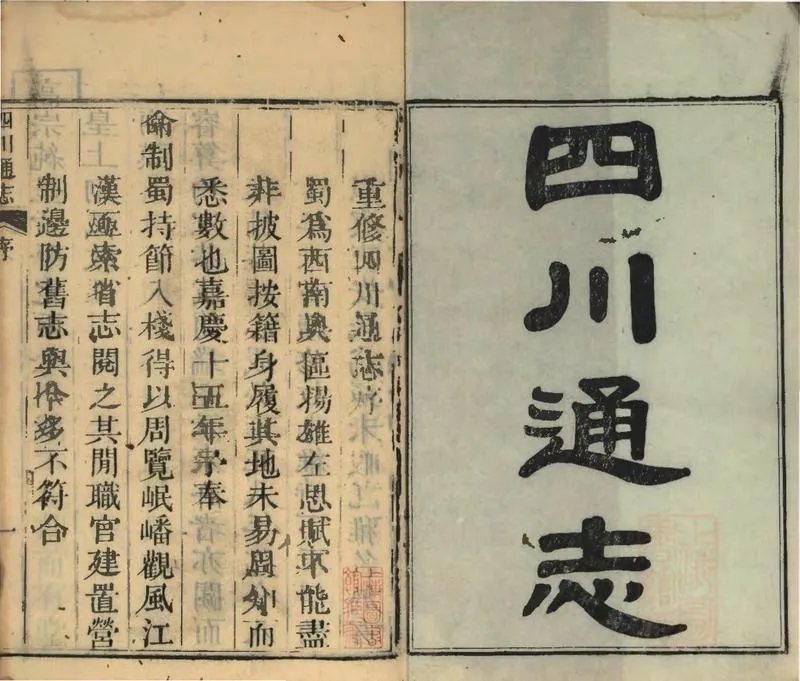 四川通志
重修四川通志序
蜀爲西南奥區揚雄左思賦不能盡
非披圖按籍身履其地未易周知而
悉數也嘉慶十五年予奉
命制蜀持節入棧得以周覽岷嶓觀風江
漢亟索省志閱之其閒職官建置營
制邊防舊志與今多不符合
四川通志
序
一